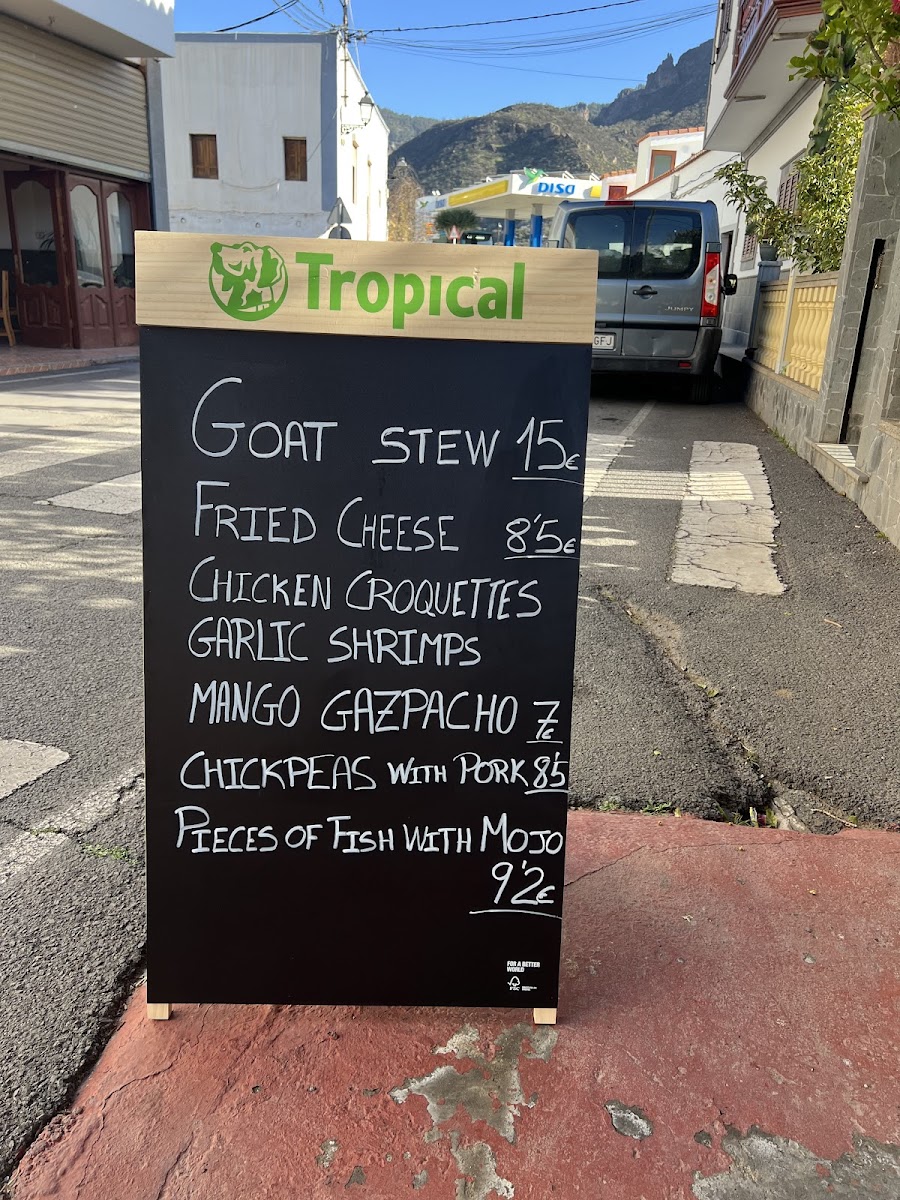 DISA
JUMPY
GFJ
Tropical
GOAT STEW 15€
FRIED CHEESE 8'5€
CHICKEN CROQUETTES
GARLIC SHRIMPS
MANGO GAZPACHO 7€
CHICKPEAS WITH PORK 8'5
PIECES OF FISH WITH MOJO
9'2€
FOR A BETTER
WORLD
FSC